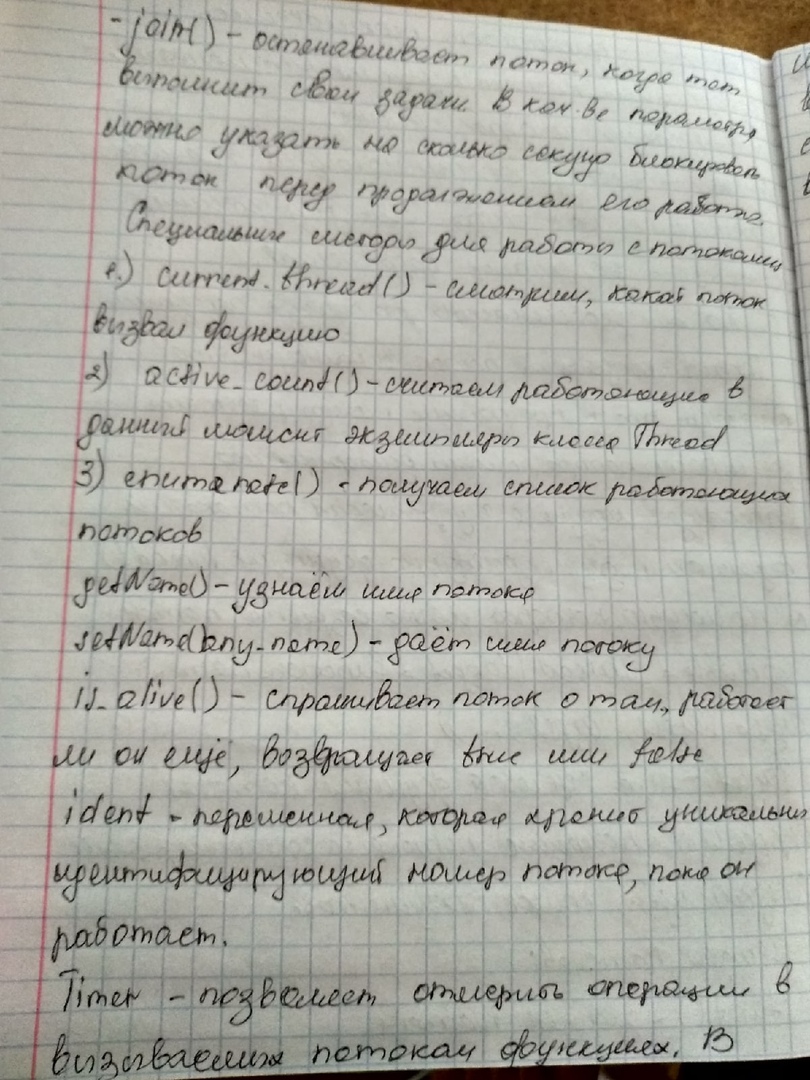 -join() - останавливает поток, когда тот
выполнит свои задачи. В кач-ве параметра
можно указать на сколько секунд блокировать
поток перед продолжением его работы.
Специальные методы для работы с потоками
1.) current.thread() - смотрим, какой поток
вызвал функцию
2) active_count() - считаем работающие в
данный момент экземпляры класса Thread
3) enumerate() - получаем список работающих
потоков
getName() - узнаём имя потока
setName(any-name) - даёт имя потоку
is_alive() - спрашивает поток о том, работает
ли он ещё, возвращает true или false
ident - переменная, которая хранит уникальный
идентифицирующий номер потока, пока он
работает.
Timer - позволяет отмерить операции в
вызываемых потоком функциях. В